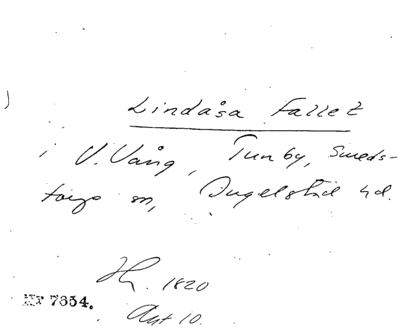 Lindåsa Fallet
i V. Vång, Tunby, Smeds-
torps sn, Ingelstad hd.
1820
Akt 10.
NY 7654.